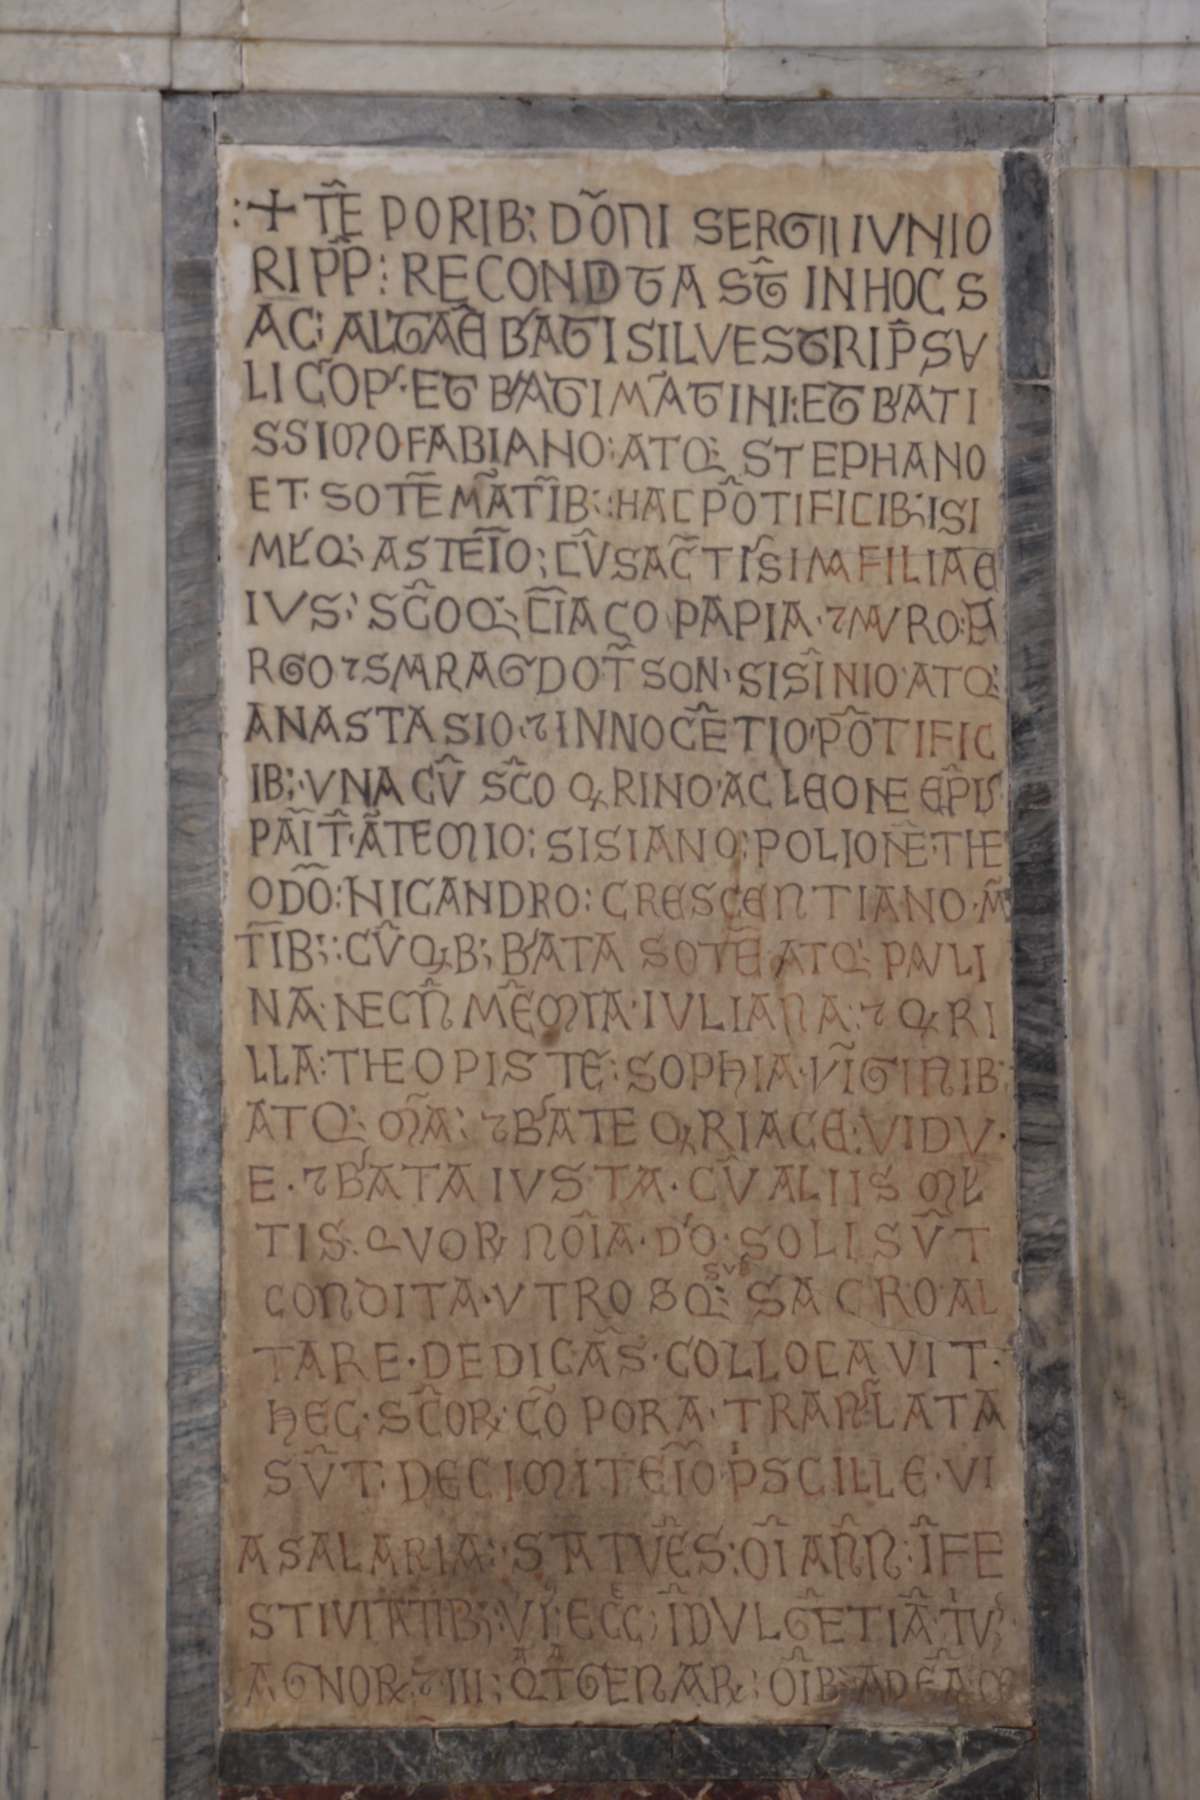 + TE PORIB; DONI SERGII IVNIO
RI PP: RECONDITA ST IN HOC S
AC; ALTAE B'ATI SILVESTRI P SV
LI COP'· ET B'ATI MATINI: ET B'ATI
SSIMO FABIANO: ATQ; STEPHANO
ET· SOTE MATIB; :HAC POTIFICIB; ISI
MŁQ; ASTEIO; CV SACTISIMA FILIA E
IVS; SCOQ; CIACO PAPIA· ⁊ MVRO: A
RGO ⁊ SMRAGDO T SON· SISINIO· ATQ;
ANASTASIO· ⁊ INNOCETIO· POTIFIC
IB; ·VNA CV SCO QRINO· AC LEONE EPIS
PAIT· ATEMIO; SISIANO; POLIONE: THE
ODO: NICANDRO: CRESCENTIANO· M
TIB; :CVQB; B'ATA SOTE ATQ; PAVLI
NA· NECN MEMIA· IVLIANA: ⁊ QRI
LLA: THEOPISTE: SOPHIA· VIGINIB:
ATQ; MA; ⁊ B'ATE QRIACE: VIDV·
E· ⁊ B'ATA IVSTA· CV ALIIS MŁ
TIS· QVOR NOIA· D'O· SOLI SVT
CONDITA· VTROSQ; SVB SACRO· AL
TARE· DEDICAS· COLLOCAVIT·
HEC· SCOR· CO PORA· TRANLATA
SVT· DECIMITEIO PSCILLE· VI
A SALARIA: STATVES: OI ANN: IFE
STIVITATIB; ·VI· ECC; IDVLGETIA· TV;
AGNOR· ⁊ III; QTGENAR; OIB; AD EA M